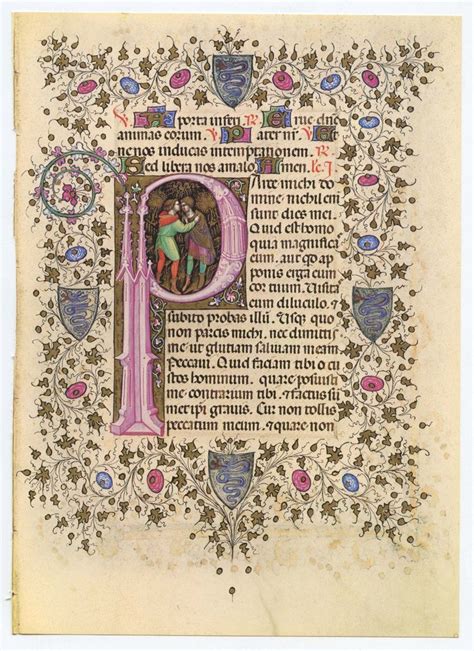 ℣ A porta inferi ℟ Erue dne
animas eorum. ℣ Pater nr. ℣ Et
ne nos inducas intemptationem. ℟
Sed libera nos amalo. Amen. lc. I.
Parce michi do
mine nichil eni
sunt dies mei.
Quid est homo
quia magnificas
eum. aut qd ap
ponis erga eum
cor tuum. Visitas
eum diluculo. &
subito probas illū. Usq; quo
non parcis michi, nec dimittis
me ut glutiam saliuam meam.
Peccaui. Quid faciam tibi o cu
stos hominum. quare posuisti
me contrarium tibi. & factus su
met ipi grauis. Cur non tollis
peccatum meum. & quare non